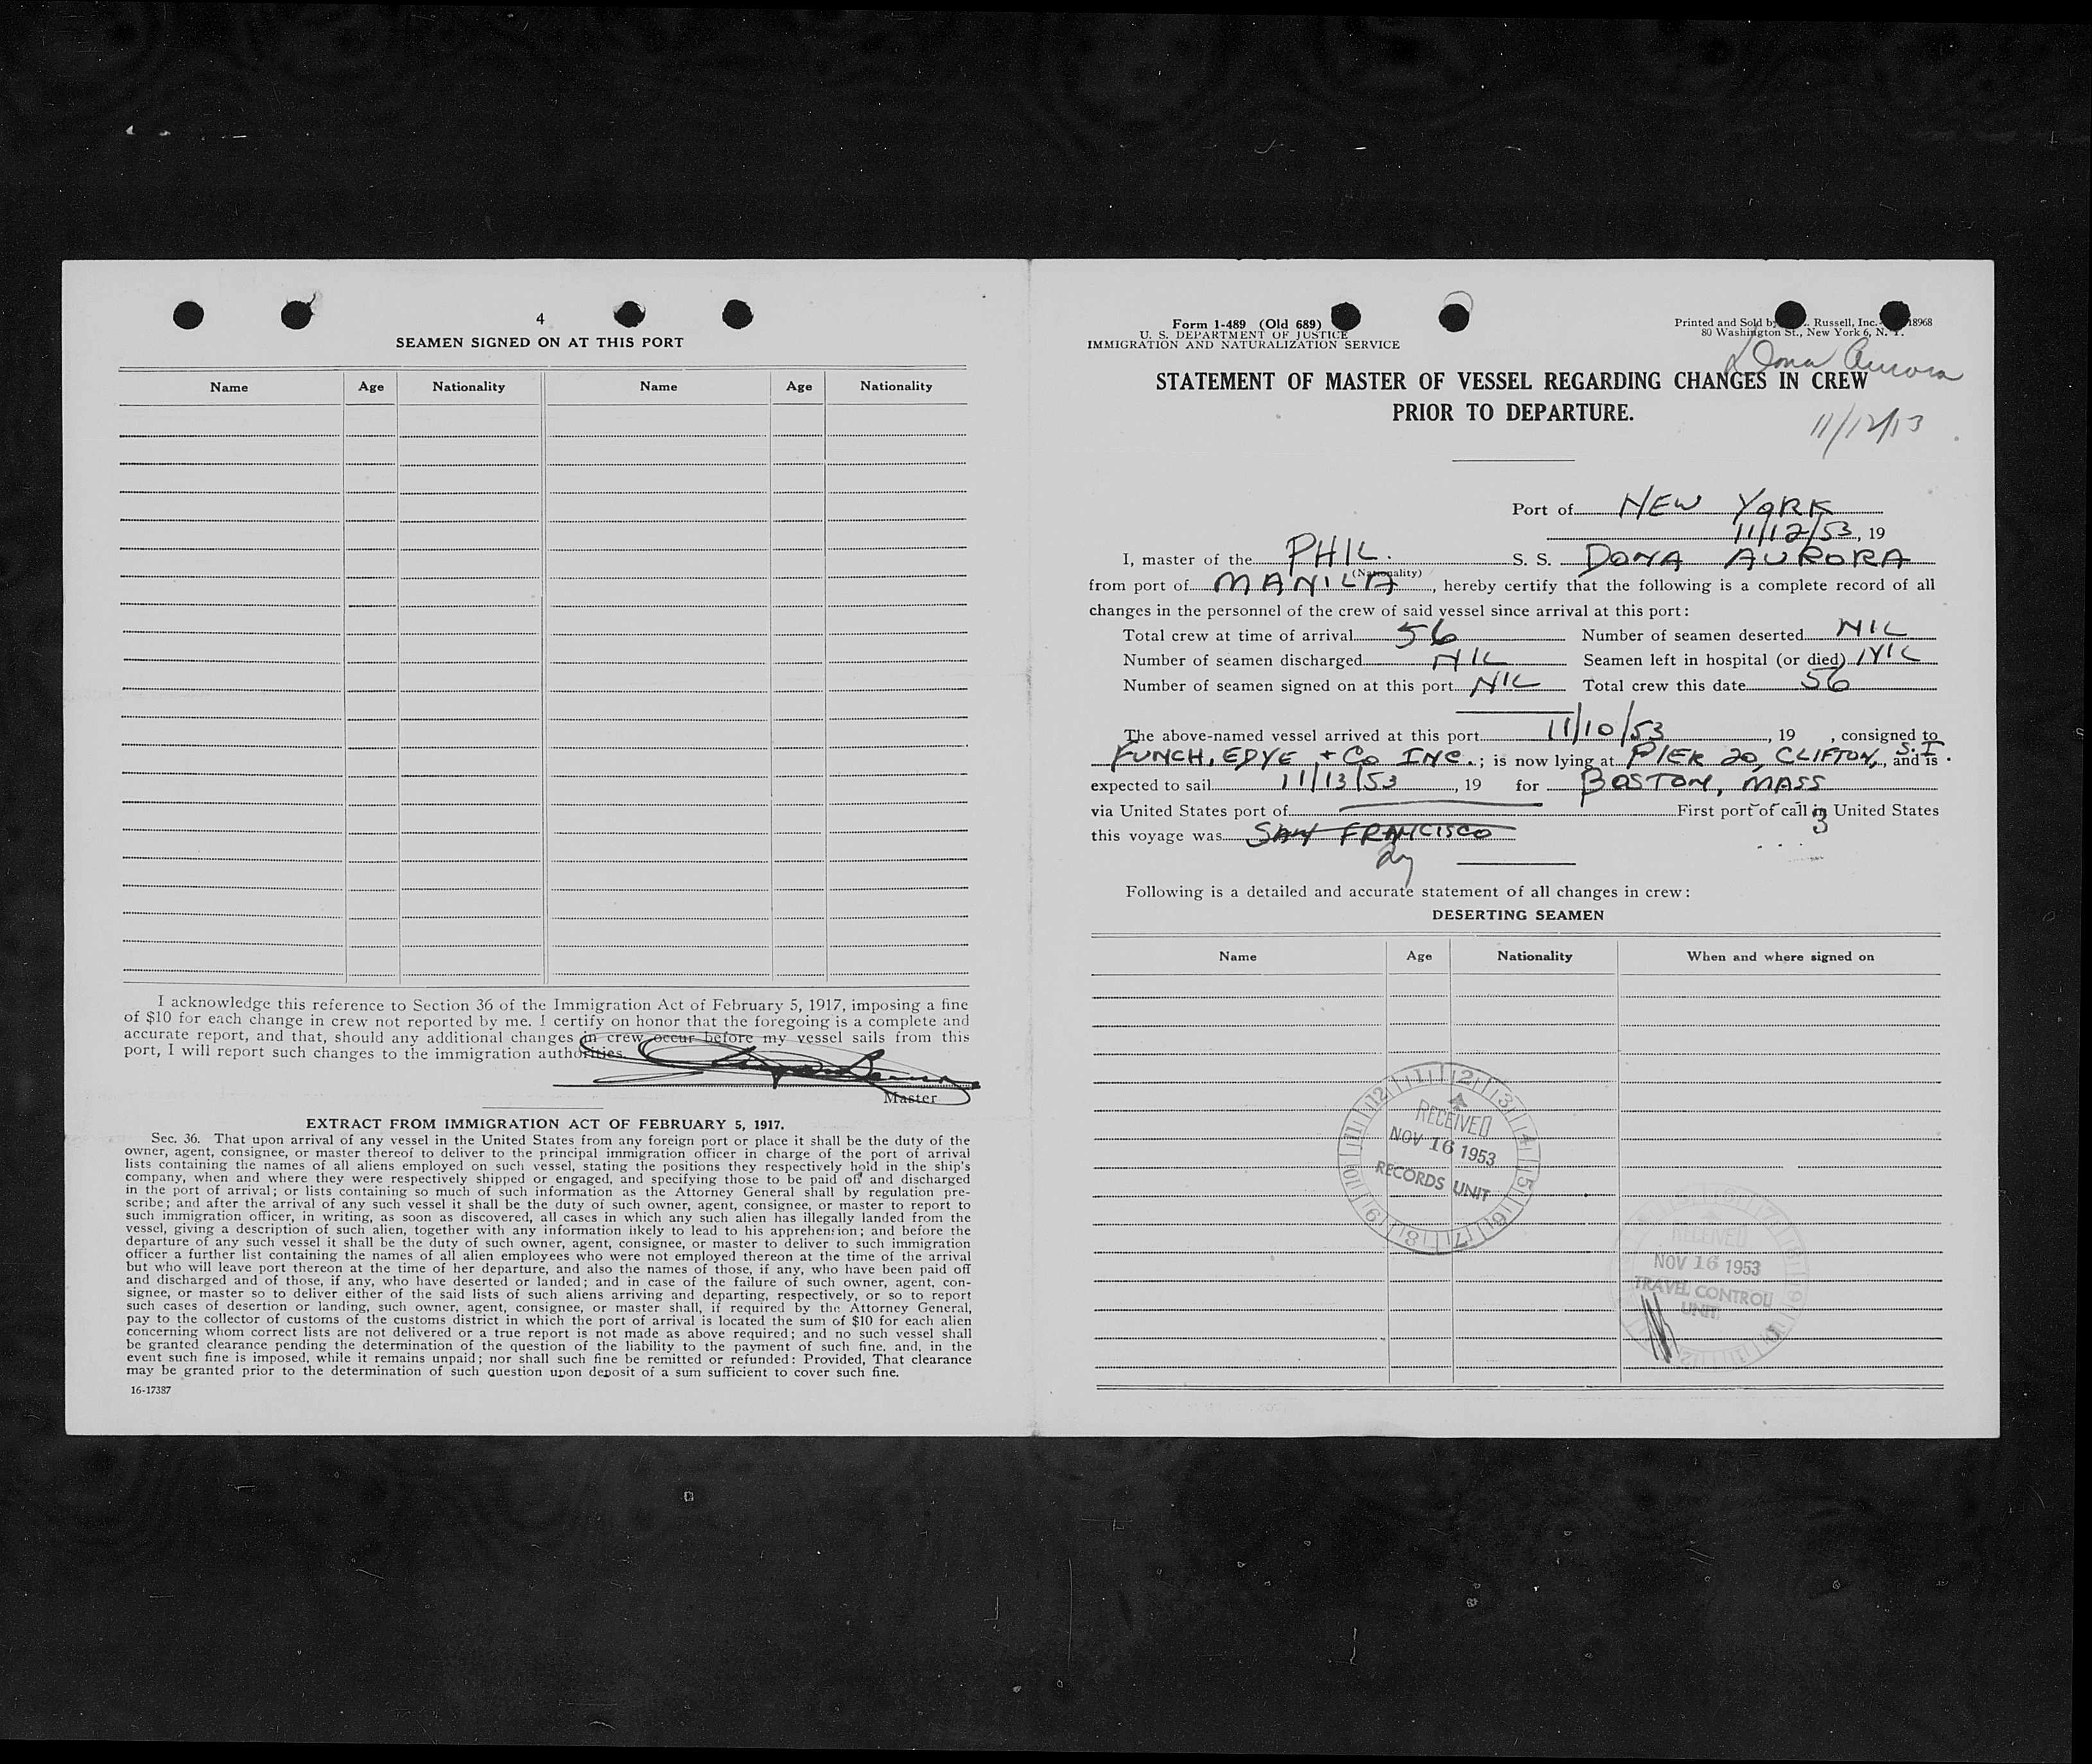 4
SEAMEN SIGNED ON AT THIS PORT
Name Age Nationality Name Age Nationality
I acknowledge this reference to Section 36 of the Immigration Act of February 5, 1917, imposing a fine
of $10 for each change in crew not reported by me. I certify on honor that the foregoing is a complete and
accurate report, and that, should any additional changes in crew occur before my vessel sails from this
port, I will report such changes to the immigration authorities.
Master
EXTRACT FROM IMMIGRATION ACT OF FEBRUARY 5, 1917.
Sec. 36. That upon arrival of any vessel in the United States from any foreign port or place it shall be the duty of the
owner, agent, consignee, or master thereof to deliver to the principal immigration officer in charge of the port of arrival
lists containing the names of all aliens employed on such vessel, stating the positions they respectively hold in the ship's
company, when and where they were respectively shipped or engaged, and specifying those to be paid off and discharged
in the port of arrival; or lists containing so much of such information as the Attorney General shall by regulation pre-
scribe; and after the arrival of any such vessel it shall be the duty of such owner, agent, consignee, or master to report to
such immigration officer, in writing, as soon as discovered, all cases in which any such alien has illegally landed from the
vessel, giving a description of such alien, together with any information likely to lead to his apprehension; and before the
departure of any such vessel it shall be the duty of such owner, agent, consignee, or master to deliver to such immigration
officer a further list containing the names of all alien employees who were not employed thereon at the time of the arrival
but who will leave port thereon at the time of her departure, and also the names of those, if any, who have been paid off
and discharged and of those, if any, who have deserted or landed; and in case of the failure of such owner, agent, con-
signee, or master so to deliver either of the said lists of such aliens arriving and departing, respectively, or so to report
such cases of desertion or landing, such owner, agent, consignee, or master shall, if required by the Attorney General,
pay to the collector of customs of the customs district in which the port of arrival is located the sum of $10 for each alien
concerning whom correct lists are not delivered or a true report is not made as above required; and no such vessel shall
be granted clearance pending the determination of the question of the liability to the payment of such fine, and, in the
event such fine is imposed, while it remains unpaid; nor shall such fine be remitted or refunded: Provided, That clearance
may be granted prior to the determination of such question upon deposit of a sum sufficient to cover such fine.
16-17387
Form 1-489 (Old 689)
U. S. DEPARTMENT OF JUSTICE
IMMIGRATION AND NATURALIZATION SERVICE
Printed and Sold by Russell, Inc. 18968
80 Washington St., New York 6, N. Y.
Dona Aurora
STATEMENT OF MASTER OF VESSEL REGARDING CHANGES IN CREW
PRIOR TO DEPARTURE.
11/12/53
Port of NEW YORK
11/12/53, 19
I, master of the PHIL. S. S. DONA AURORA
(Nationality)
from port of MANILA, hereby certify that the following is a complete record of all
changes in the personnel of the crew of said vessel since arrival at this port:
Total crew at time of arrival 56 Number of seamen deserted NIL
Number of seamen discharged NIL Seamen left in hospital (or died) NIL
Number of seamen signed on at this port NIL Total crew this date 56
The above-named vessel arrived at this port 11/10/53, 19 , consigned to
FUNCH, EDYE + CO INC.; is now lying at PIER 20, CLIFTON, S. I., and is
expected to sail 11/13/53, 19 for BOSTON, MASS
via United States port of First port of call in United States
this voyage was SAN FRANCISCO
Following is a detailed and accurate statement of all changes in crew:
DESERTING SEAMEN
Name Age Nationality When and where signed on
RECEIVED
NOV 16 1953
RECORDS UNIT
RECEIVED
NOV 16 1953
TRAVEL CONTROL
UNIT